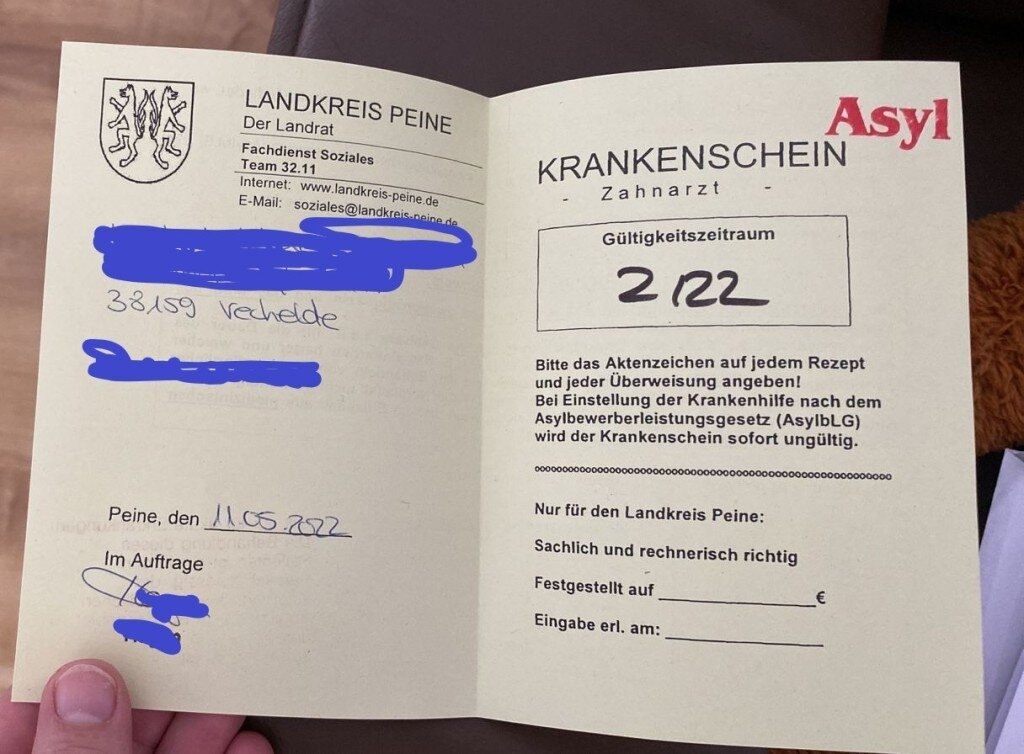 LANDKREIS PEINE
Der Landrat
Fachdienst Soziales
Team 32.11
Internet: www.landkreis-peine.de
E-Mail: soziales@landkreis-peine.de
38159 Vechelde
Peine, den 11.05.2022
Im Auftrage
Asyl
KRANKENSCHEIN
- Zahnarzt -
Gültigkeitszeitraum
2/22
Bitte das Aktenzeichen auf jedem Rezept
und jeder Überweisung angeben!
Bei Einstellung der Krankenhilfe nach dem
Asylbewerberleistungsgesetz (AsylbLG)
wird der Krankenschein sofort ungültig.
Nur für den Landkreis Peine:
Sachlich und rechnerisch richtig
Festgestellt auf €
Eingabe erl. am: